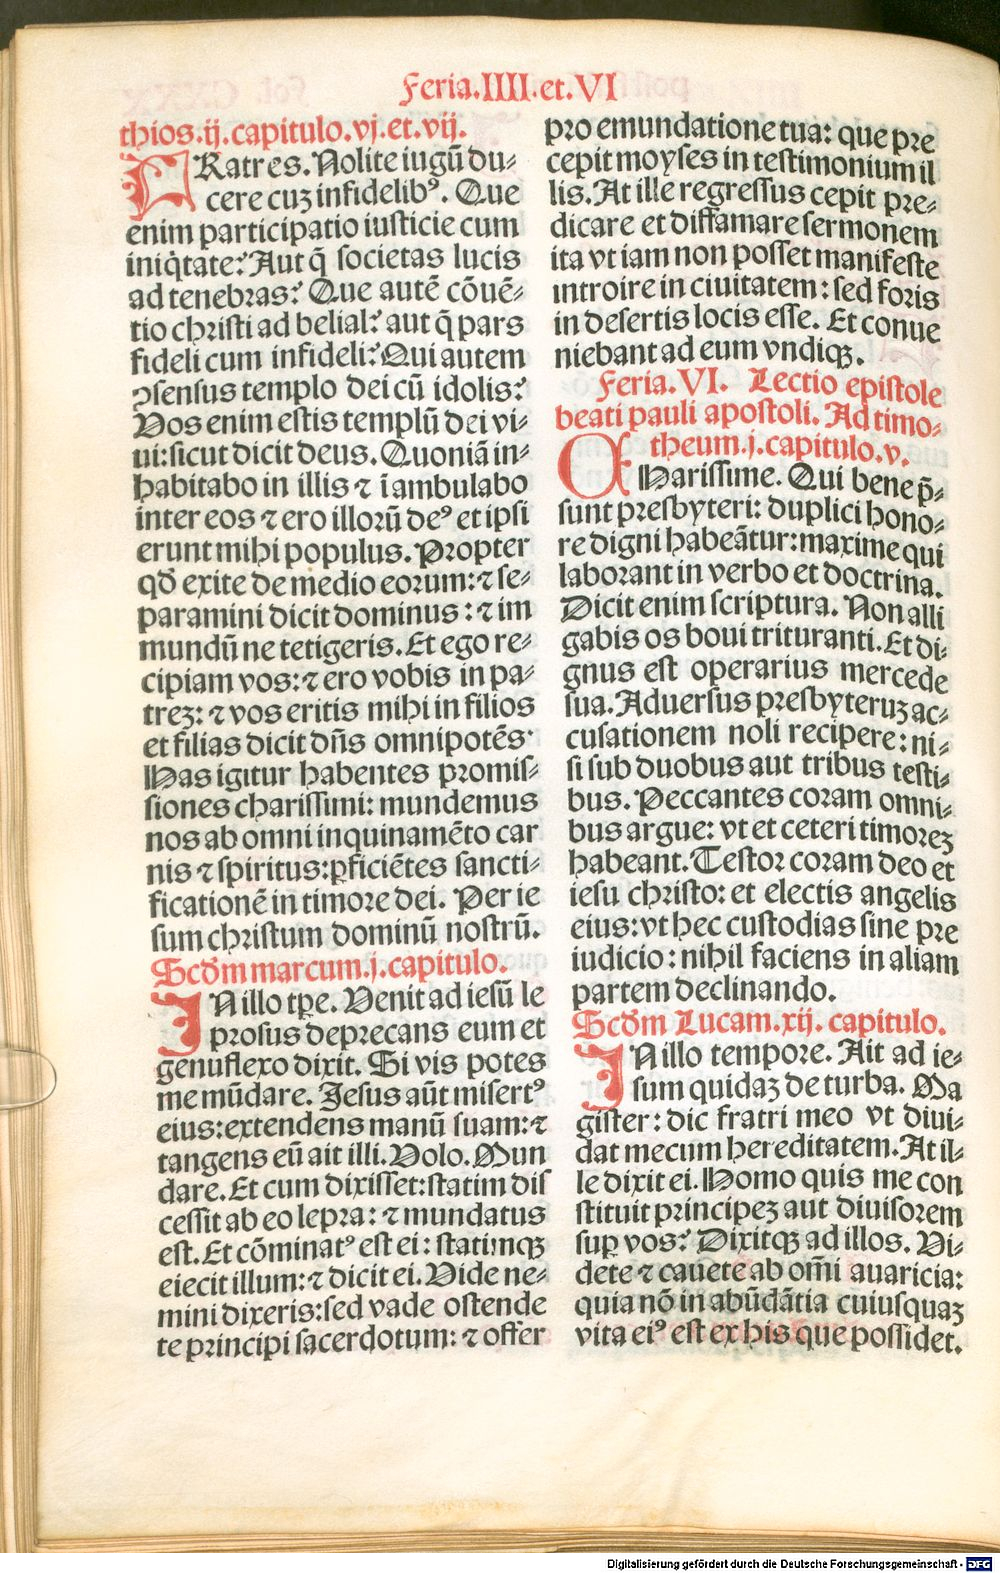 Feria.IIII.et.VI
thios.ij.capitulo.vj.et.vij.
FRatres. Nolite iugũ du⸗
cere cuꝫ infidelibꝰ. Que
enim participatio iusticie cum
iniq̇tate? Aut q̃ societas lucis
ad tenebras? Que autẽ cõuẽ⸗
tio christi ad belial? aut q̃ pars
fideli cum infideli? Qui autem
ꝯsensus templo dei cũ idolis?
Vos enim estis templũ dei vi⸗
ui: sicut dicit deus. Quoniã in⸗
habitabo in illis ⁊ ĩambulabo
inter eos ⁊ ero illorũ deꝰ et ipsi
erunt mihi populus. Propter
qd̃ exite de medio eorum: ⁊ se⸗
paramini dicit dominus: ⁊ im
mundũ ne tetigeris. Et ego re⸗
cipiam vos: ⁊ ero vobis in pa⸗
treꝫ: ⁊ vos eritis mihi in filios
et filias dicit dñs omnipotẽs.
Has igitur habentes promis⸗
siones charissimi: mundemus
nos ab omni inquinamẽto car
nis ⁊ spiritus: ꝑficiẽtes sancti⸗
ficationẽ in timore dei. Per ie
sum christum dominũ nostrũ.
Scd̃m marcum.j.capitulo.
IN illo tꝑe. Venit ad iesũ le
prosus deprecans eum et
genuflexo dixit. Si vis potes
me mũdare. Jesus aũt misertꝰ
eius: extendens manũ suam: ⁊
tangens eũ ait illi. Volo. Mun
dare. Et cum dixisset: statim dis
cessit ab eo lepra: ⁊ mundatus
est. Et cõminatꝰ est ei: statimqꝫ
eiecit illum: ⁊ dicit ei. Vide ne⸗
mini dixeris: sed vade ostende
te principi sacerdotum: ⁊ offer
pro emundatione tua: que pre
cepit moyses in testimonium il
lis. At ille regressus cepit pre⸗
dicare et diffamare sermonem
ita vt iam non posset manifeste
introire in ciuitatem: sed foris
in desertis locis esse. Et conue
niebant ad eum vndiqꝫ.
Feria.VI. Lectio epistole
beati pauli apostoli. Ad timo⸗
theum.j.capitulo.v.
CHarissime. Qui bene p̃⸗
sunt presbyteri: duplici hono⸗
re digni habeãtur: maxime qui
laborant in verbo et doctrina.
Dicit enim scriptura. Non alli
gabis os boui trituranti. Et di⸗
gnus est operarius mercede
sua. Aduersus presbyteruꝫ ac⸗
cusationem noli recipere: ni⸗
si sub duobus aut tribus testi⸗
bus. Peccantes coram omni⸗
bus argue: vt et ceteri timoreꝫ
habeant. Testor coram deo et
iesu christo: et electis angelis
eius: vt hec custodias sine pre
iudicio: nihil faciens in aliam
partem declinando.
Scd̃m Lucam.xij. capitulo.
IN illo tempore. Ait ad ie⸗
sum quidaꝫ de turba. Ma
gister: dic fratri meo vt diui⸗
dat mecum hereditatem. At il⸗
le dixit ei. Homo quis me con
stituit principeꝫ aut diuisorem
suꝑ vos? Dixitqꝫ ad illos. Vi⸗
dete ⁊ cauete ab om̃i auaricia:
quia nõ in abũdãtia cuiusquaꝫ
vita eiꝰ est ex his que possidet.
Digitalisierung gefördert durch die Deutsche Forschungsgemeinschaft - DFG